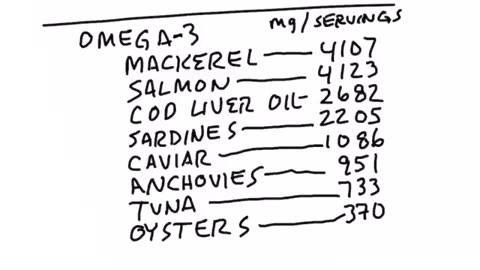 OMEGA-3 mg/SERVINGS
MACKEREL — 4107
SALMON — 4123
COD LIVER OIL - 2682
SARDINES — 2205
CAVIAR — 1086
ANCHOVIES — 951
TUNA — 733
OYSTERS — 370